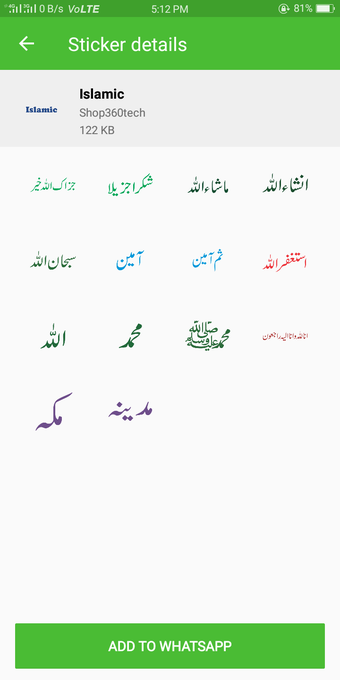 0 B/s VoLTE 5:12 PM 81%
Sticker details
Islamic
Islamic
Shop360tech
122 KB
جزاک اللہ خیر
شکرا جزیلا
ماشاءاللہ
انشاءاللہ
سبحان اللہ
آمین
ثم آمین
استغفراللہ
اللہ
محمد
محمد ﷺ
اناللہ وانا الیہ راجعون
مکہ
مدینہ
ADD TO WHATSAPP